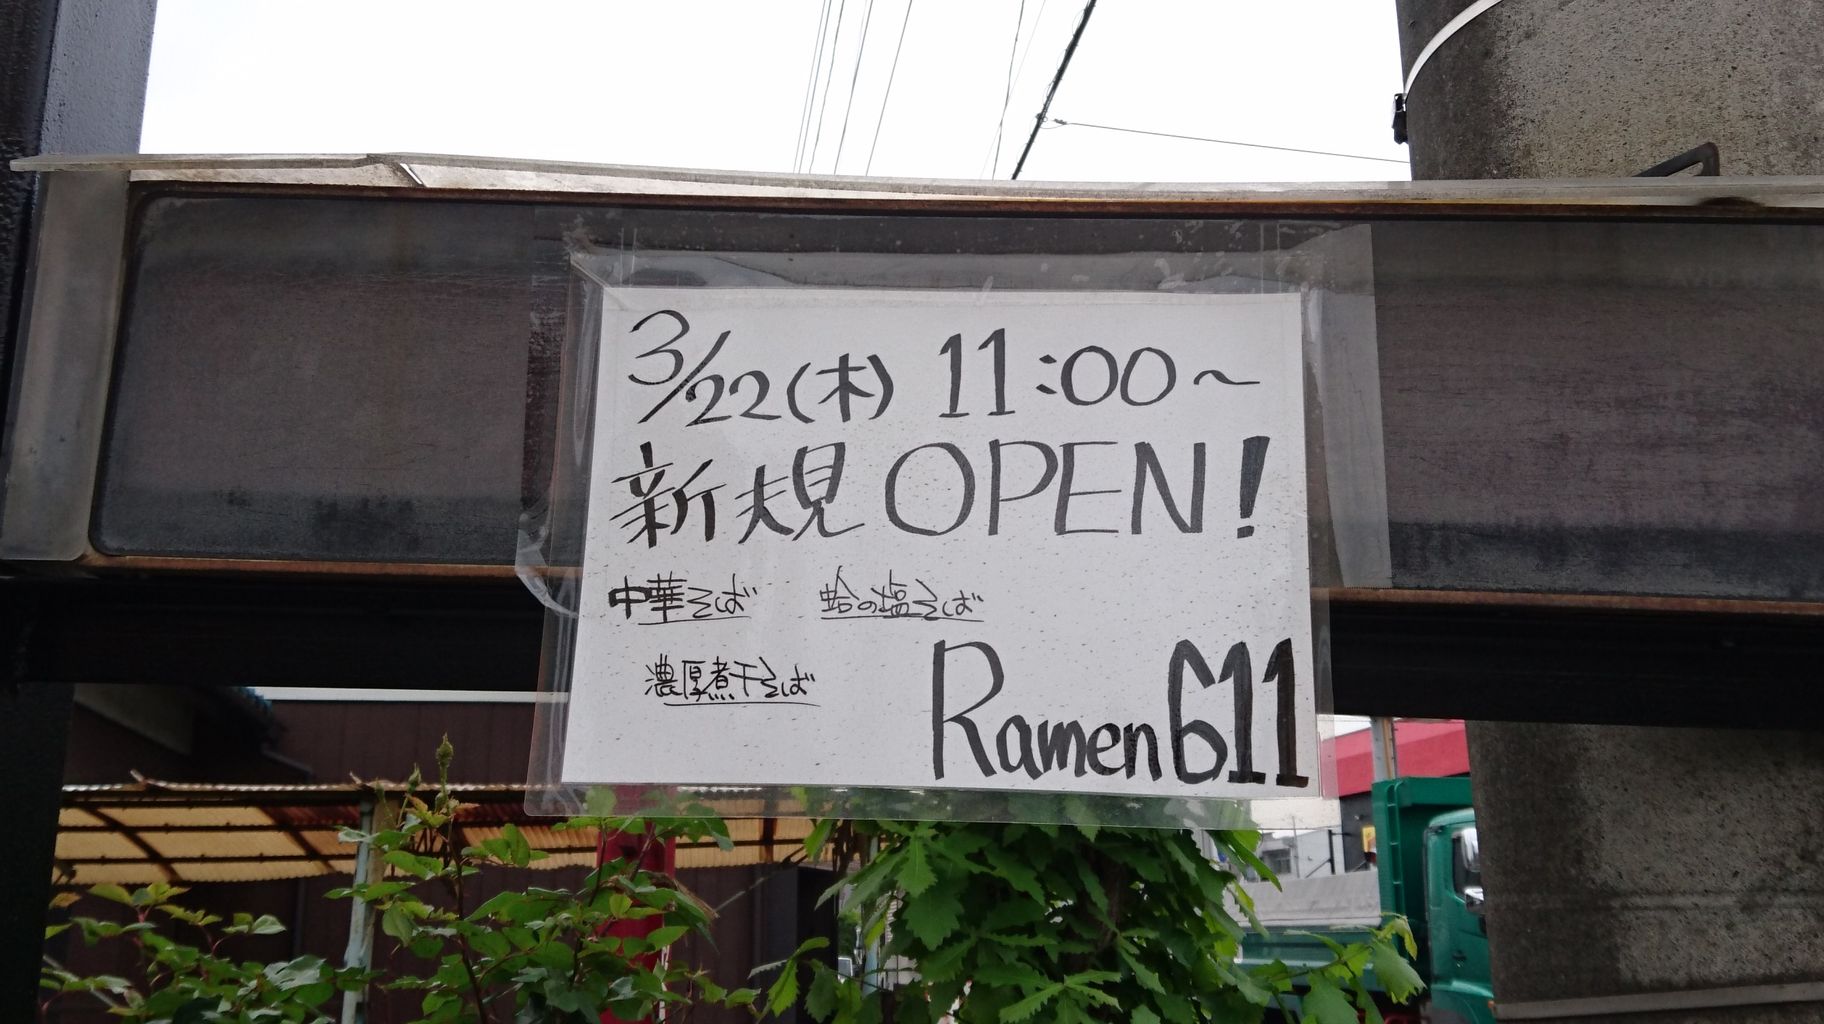 3/22(木) 11:00～
新規OPEN!
中華そば 蛤の塩そば
濃厚煮干そば
Ramen611